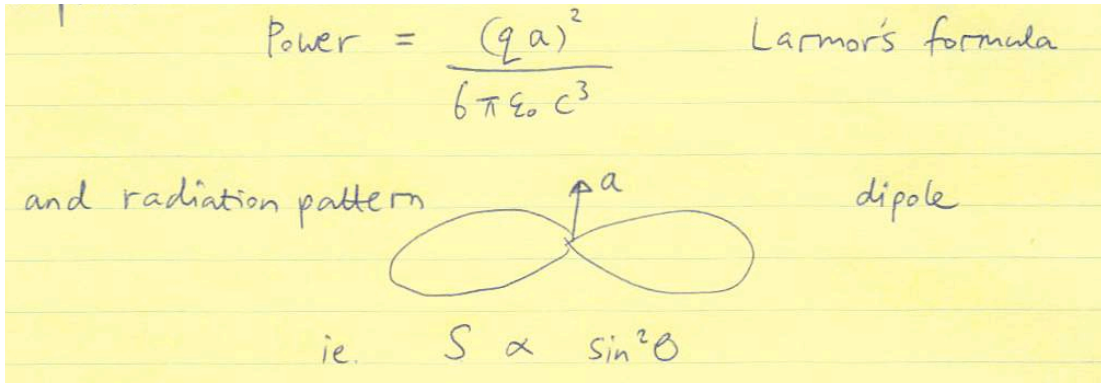 Power = (q a)² / 6 π ε₀ c³ Larmor's formula
and radiation pattern a dipole
ie. S ∝ sin²θ